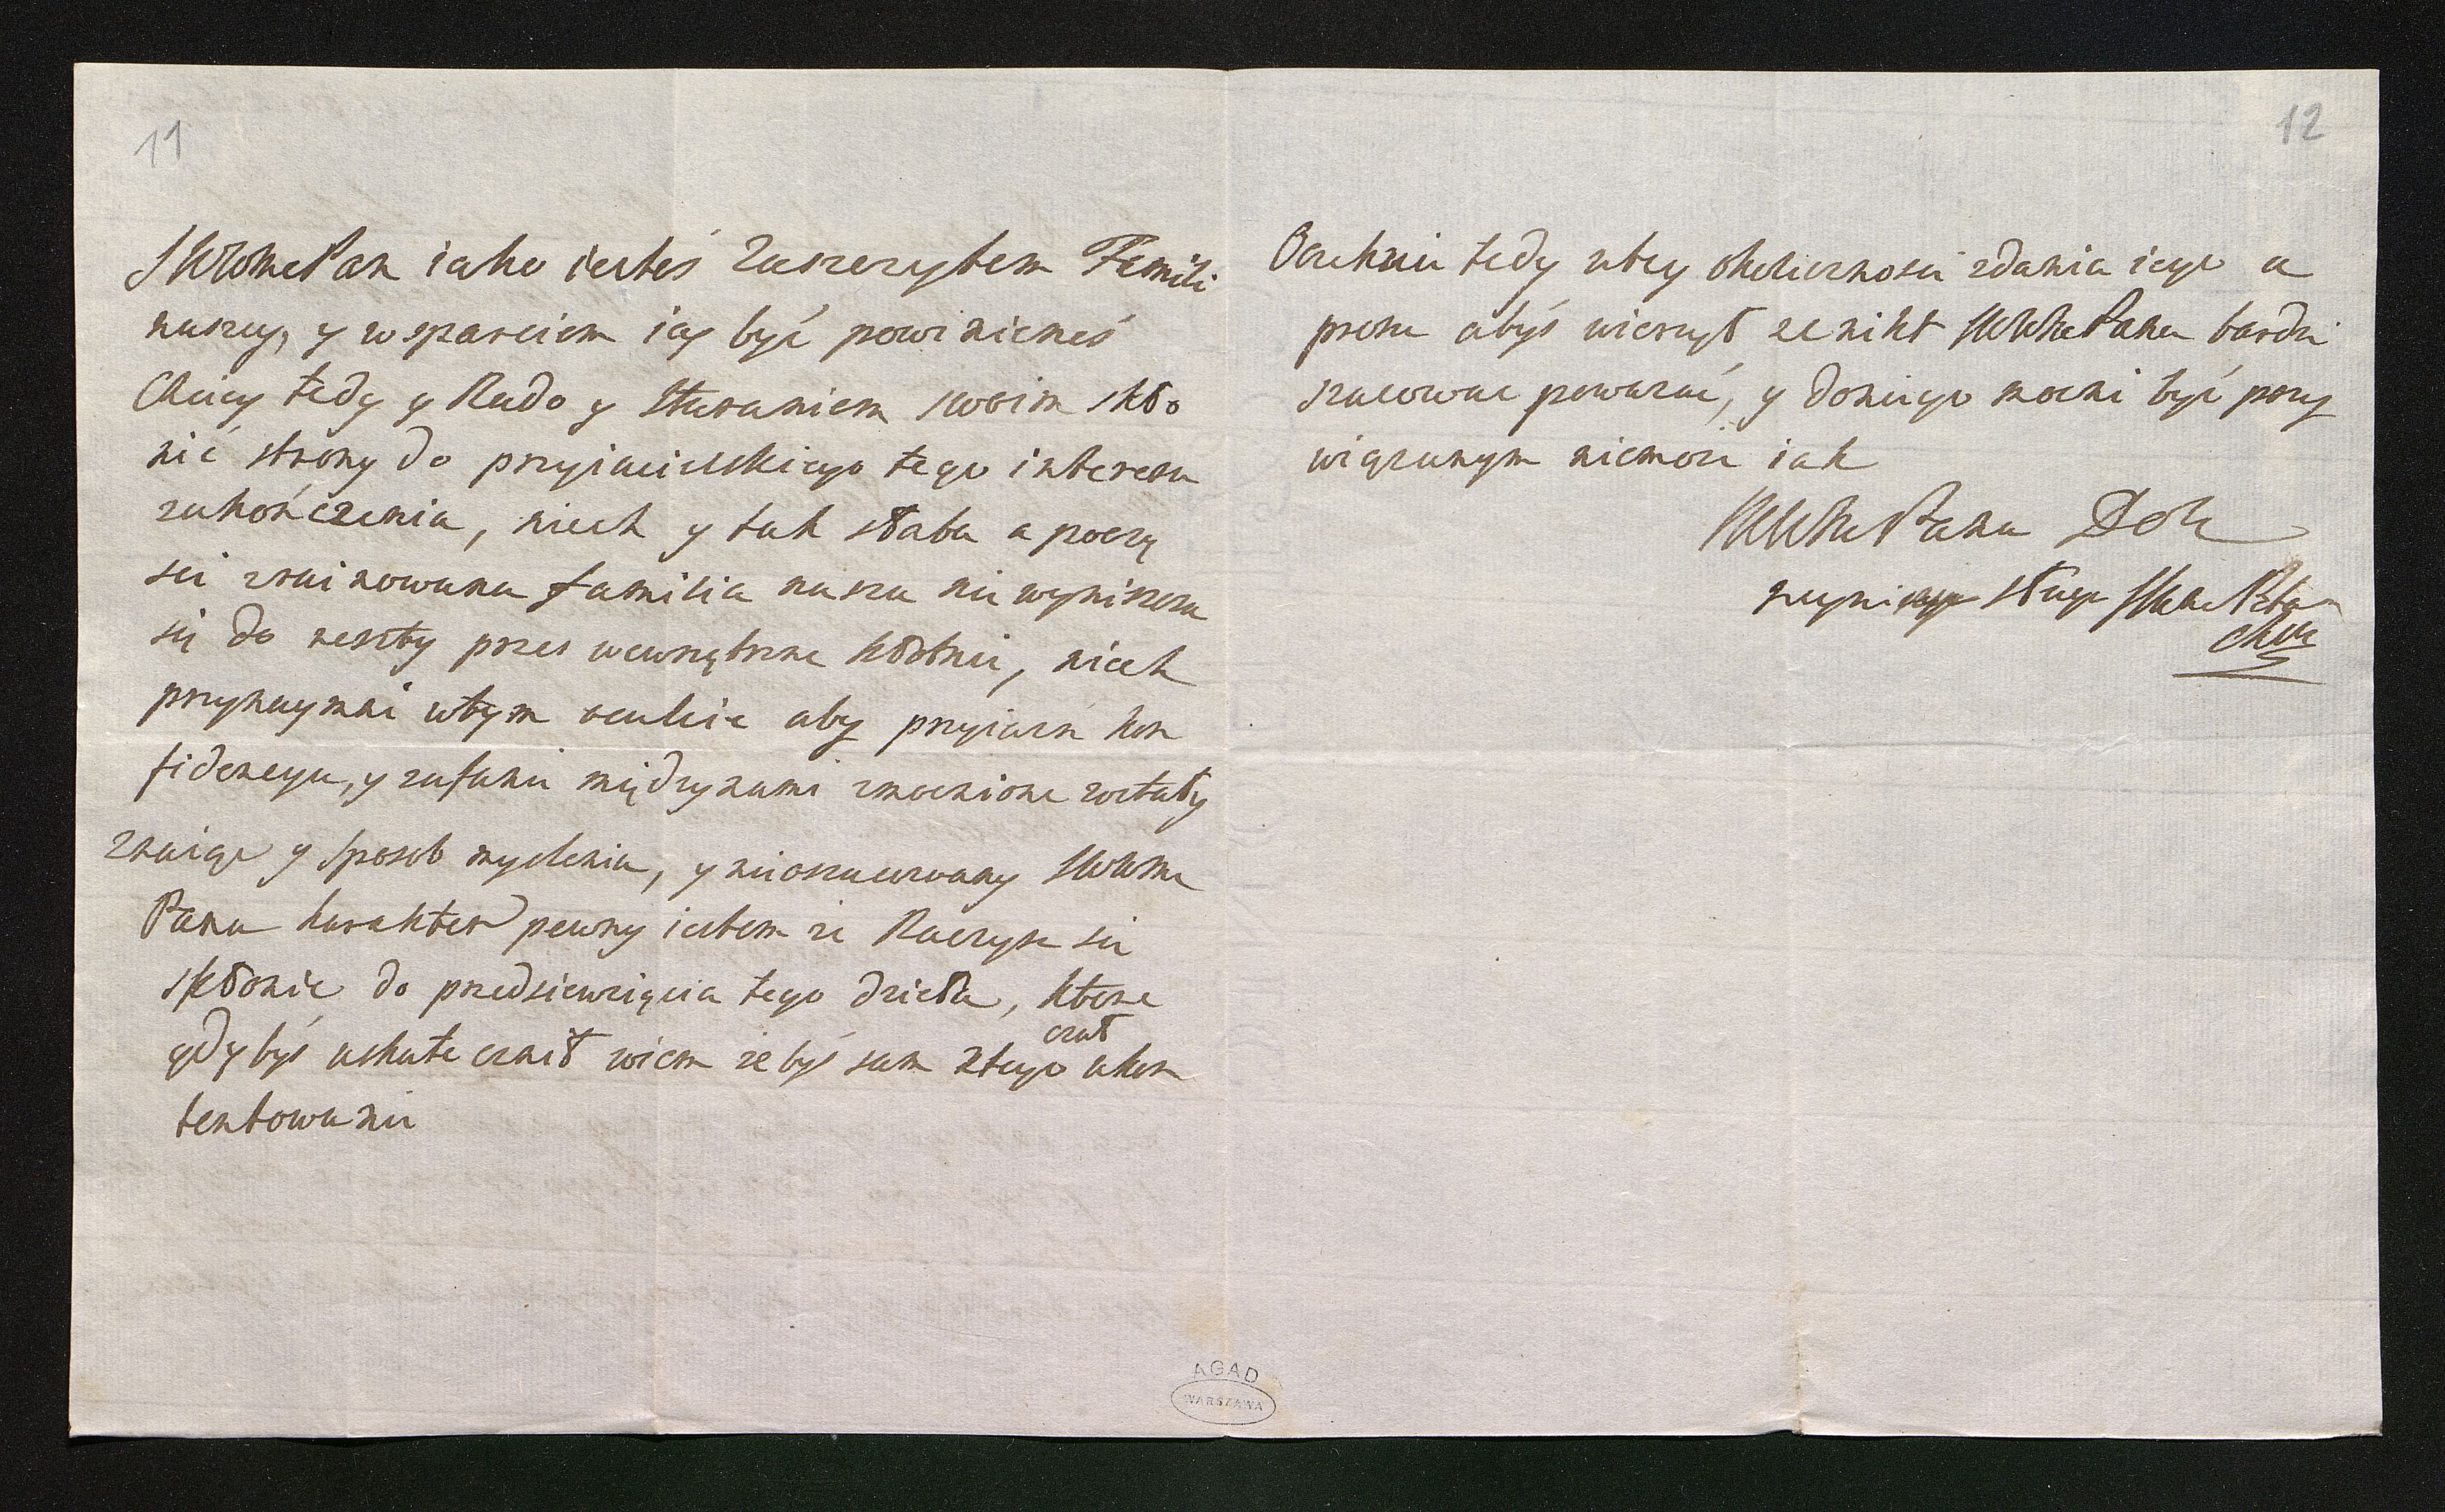 11
JWWMePan iako iesteś Zaszczytem Familii
naszey, y wsparciem iey być powinieneś
Chciey tedy y Rado y Staraniem swoim skło
nić strony do przyiacielskiego tego interesu
zakończenia, niech y tak słaba a poczę
sci zruinowana familia nasza nie wyniszcza
się do reszty przes wewnętrzne kłotnie, niech
przynaymni wtym ocalcie aby przyiaźń kon
fidencya, y zufanie międzynami zmocnione zostały
znaiąc y sposob myslenia, y nieoszacowany JWWMe
Pana karakter pewny iestem ze Raczysz sie
skłonic do przedsiewzięcia tego dzieła, ktore
gdybyś uskutecznił wiem zebyś sam ztego czuł ukon
tentowanie
12
Oczekuie tedy wtey okolicznosci zdania iego a
prosze abyś wierzył ze nikt JWWMePana bardzi
szacowac poważać, y doniego mocni być przy
wiązanym niemoze iak
JWWMePana Dob
sługa
AGAD
WARSZAWA